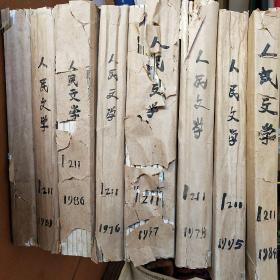 人民文学
1211
人民文学
1211
1986
人民文学
1211
1976
人民文学
1211
人民文学
1211
人民文学
1211
1995
人民文学
1211